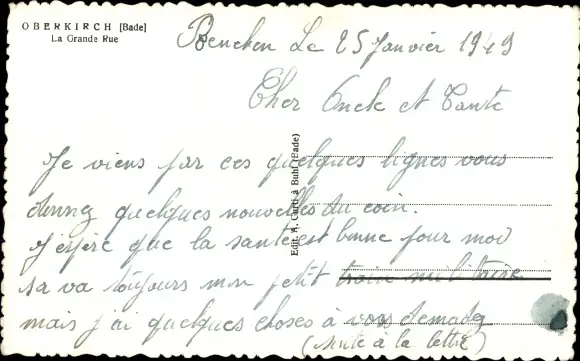 OBERKIRCH [Bade]
La Grande Rue
Renchen Le 25 Janvier 1949
Cher Oncle et Tante
Je viens par ces quelques lignes vous
donnez quelques nouvelles du coin.
J'espère que la santé est bonne pour moi
sa va toujours mon petit train militaire
mais j'ai quelques choses à vous demadez
(suite à la lettre)
Edit. A. Curti à Buhl (Bade)